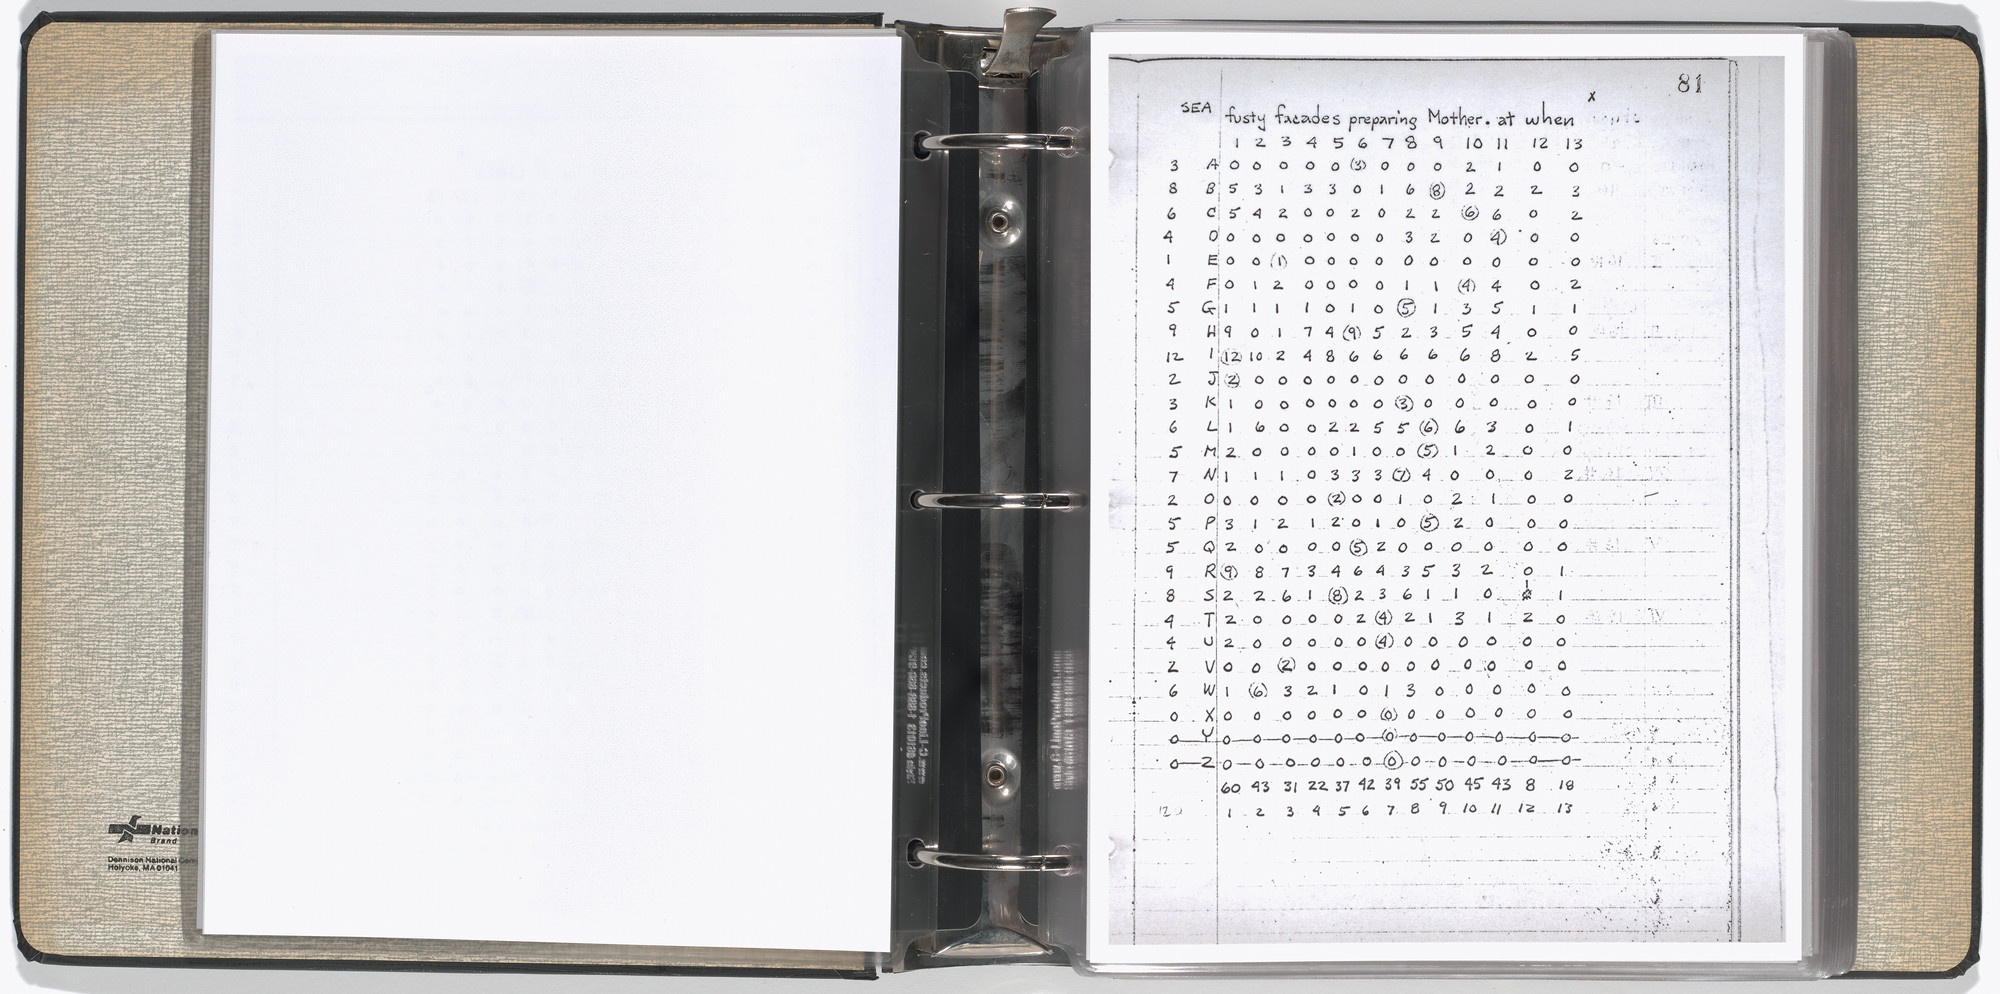 81
x
SEA fusty facades preparing Mother. at when
1 2 3 4 5 6 7 8 9 10 11 12 13
3 A 0 0 0 0 0 3 0 0 0 2 1 0 0
8 B 5 3 1 3 3 0 1 6 8 2 2 2 3
6 C 5 4 2 0 0 2 0 2 2 6 6 0 2
4 D 0 0 0 0 0 0 0 3 2 0 4 0 0
1 E 0 0 1 0 0 0 0 0 0 0 0 0 0
4 F 0 1 2 0 0 0 0 1 1 4 4 0 2
5 G 1 1 1 1 0 1 0 5 1 3 5 1 1
9 H 9 0 1 7 4 9 5 2 3 5 4 0 0
12 I 12 10 2 4 8 6 6 6 6 6 8 2 5
2 J 2 0 0 0 0 0 0 0 0 0 0 0 0
3 K 1 0 0 0 0 0 0 3 0 0 0 0 0
6 L 1 6 0 0 2 2 5 5 6 6 3 0 1
5 M 2 0 0 0 0 1 0 0 5 1 2 0 0
7 N 1 1 1 0 3 3 3 7 4 0 0 0 2
2 O 0 0 0 0 2 0 0 1 0 2 1 0 0
5 P 3 1 2 1 2 0 1 0 5 2 0 0 0
5 Q 2 0 0 0 0 5 2 0 0 0 0 0 0
9 R 9 8 7 3 4 6 4 3 5 3 2 0 1
8 S 2 2 6 1 8 2 3 6 1 1 0 1 1
4 T 2 0 0 0 0 2 4 2 1 3 1 2 0
4 U 2 0 0 0 0 0 4 0 0 0 0 0 0
2 V 0 0 2 0 0 0 0 0 0 0 0 0 0
6 W 1 6 3 2 1 0 1 3 0 0 0 0 0
0 X 0 0 0 0 0 0 0 0 0 0 0 0 0
0 Y 0 0 0 0 0 0 0 0 0 0 0 0 0
0 Z 0 0 0 0 0 0 0 0 0 0 0 0 0
60 43 31 22 37 42 39 55 50 45 43 8 18
1 2 3 4 5 6 7 8 9 10 11 12 13
Nation
Brand
Dennison National Com
Holyoke, MA 01041